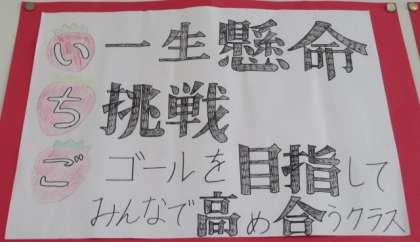 い 一生懸命
ち 挑戦
ご ゴールを目指して
みんなで高め合うクラス